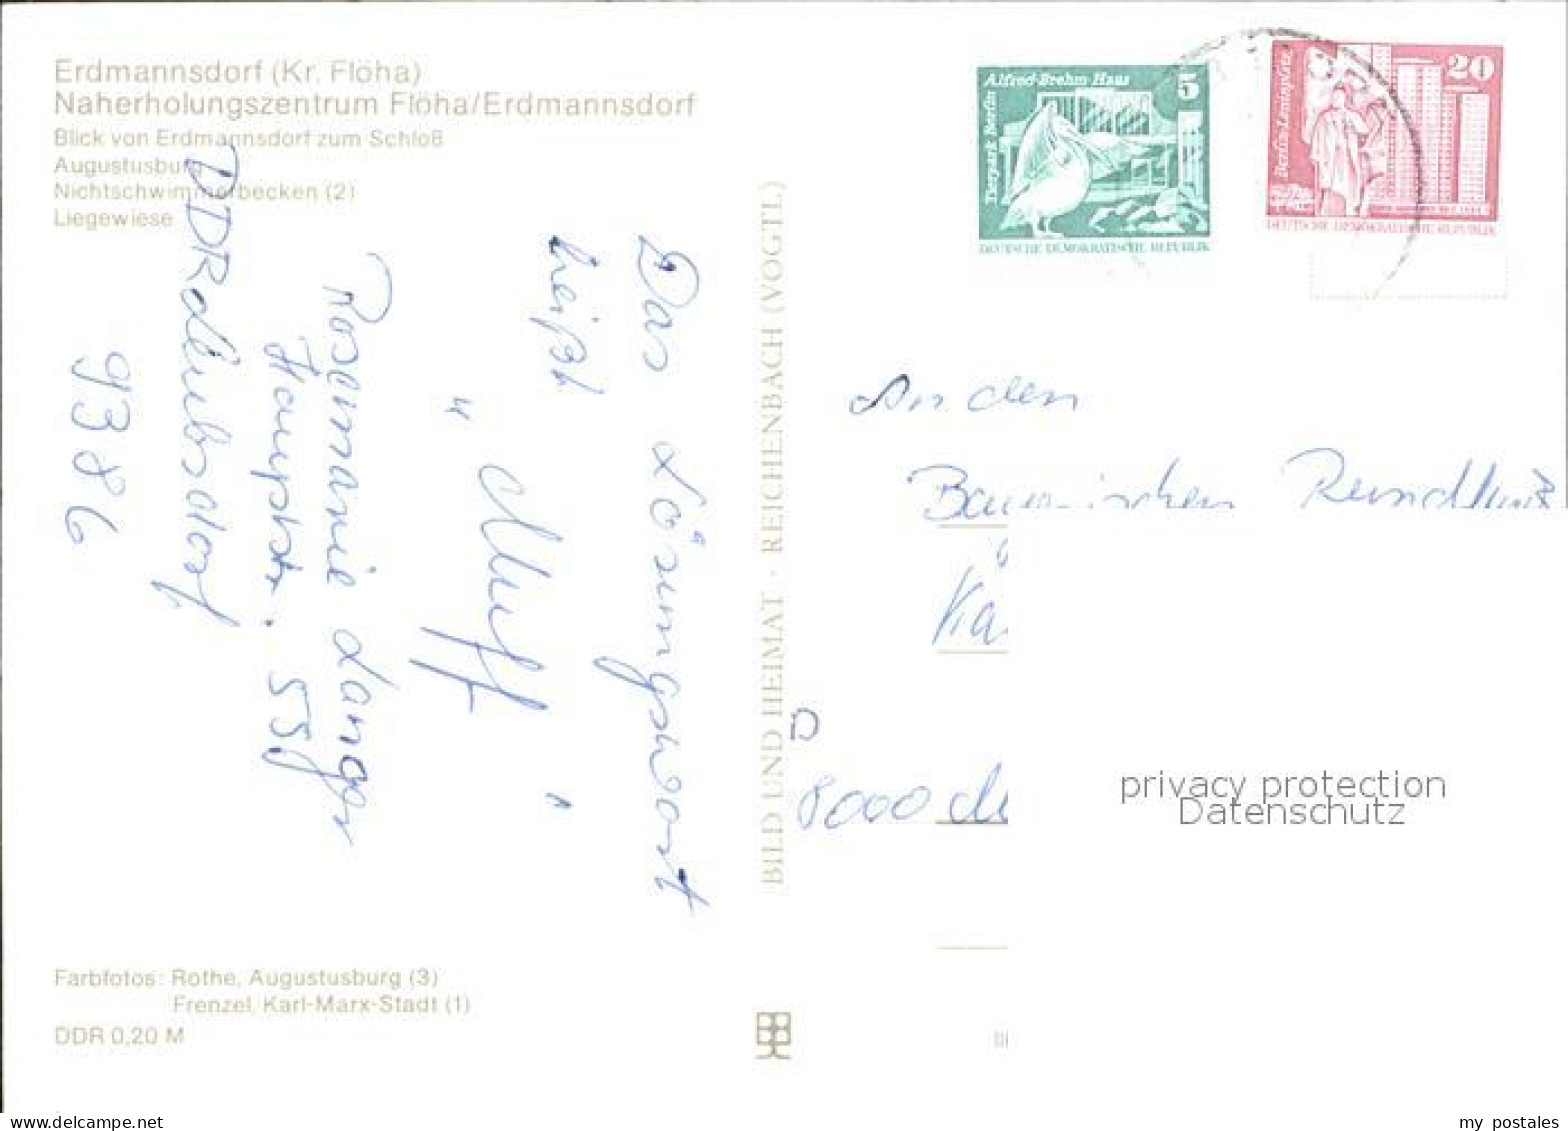 Erdmannsdorf (Kr. Flöha)
Naherholungszentrum Flöha/Erdmannsdorf
Blick von Erdmannsdorf zum Schloß
Augustusburg
Nichtschwimmerbecken (2)
Liegewiese
Das Lösungswort
heißt
" Muff "
Rosemarie Langer
Hauptstr. 55
DDR
9386
Farbfotos: Rothe, Augustusburg (3)
Frenzel, Karl-Marx-Stadt (1)
DDR 0,20 M
BILD UND HEIMAT · REICHENBACH (VOGTL)
Alfred-Brehm-Haus 5
Tierpark Berlin
DEUTSCHE DEMOKRATISCHE REPUBLIK
20
Berlin-Leninplatz
DEUTSCHE DEMOKRATISCHE REPUBLIK
An den
Bayerischen Rundfunk
D
8000
privacy protection
Datenschutz
www.delcampe.net
my_postales